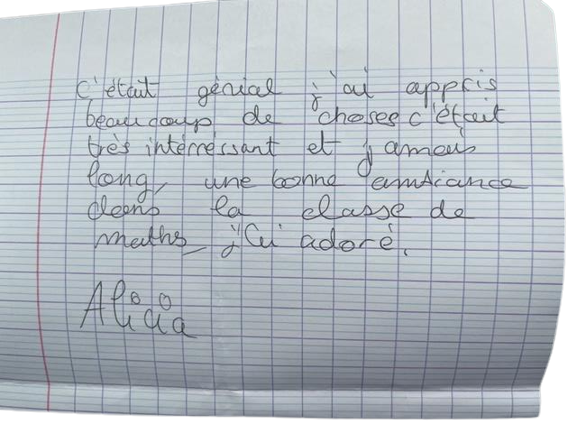 c'était génial j'ai appris
beaucoup de choses c'était
très intérréssant et jamais
long, une bonne ambiance
dans la classe de
maths, j'ai adoré.
Alicia